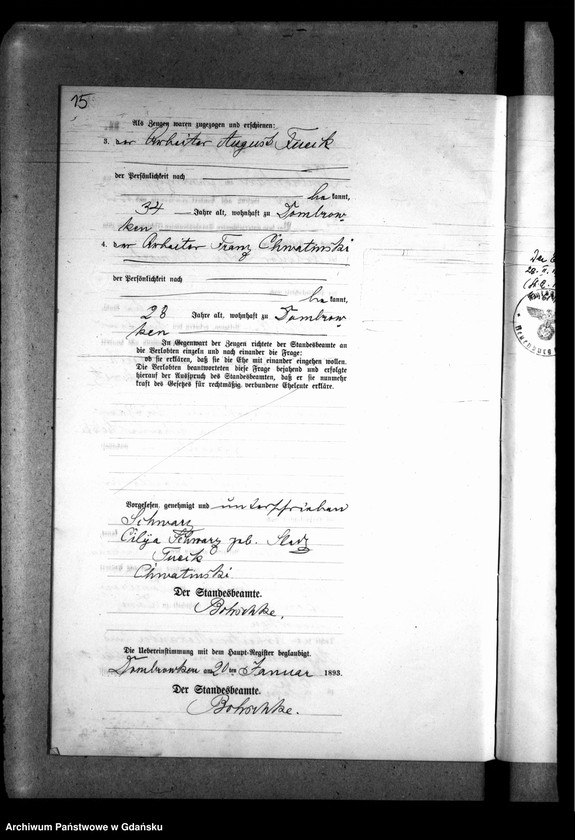 15
Als Zeugen waren zugezogen und erschienen:
3. der Arbeiter August Fucik
der Persönlichkeit nach
bekannt,
34 Jahre alt, wohnhaft zu Dombrow-
ken
4. der Arbeiter Franz Chwatinski
der Persönlichkeit nach
bekannt,
28 Jahre alt, wohnhaft zu Dombrow-
ken
In Gegenwart der Zeugen richtete der Standesbeamte an
die Verlobten einzeln und nach einander die Frage:
ob sie erklären, daß sie die Ehe mit einander eingehen wollen.
Die Verlobten beantworteten diese Frage bejahend und erfolgte
hierauf der Ausspruch des Standesbeamten, daß er sie nunmehr
kraft des Gesetzes für rechtmäßig verbundene Eheleute erkläre.
Vorgelesen, genehmigt und unterschrieben
Schwarz
Schwarz geb.
Fucik
Chwatinski
Der Standesbeamte.
Die Uebereinstimmung mit dem Haupt-Register beglaubigt.
Dombrowken am 20ten Januar 1893.
Der Standesbeamte.
Archiwum Państwowe w Gdańsku